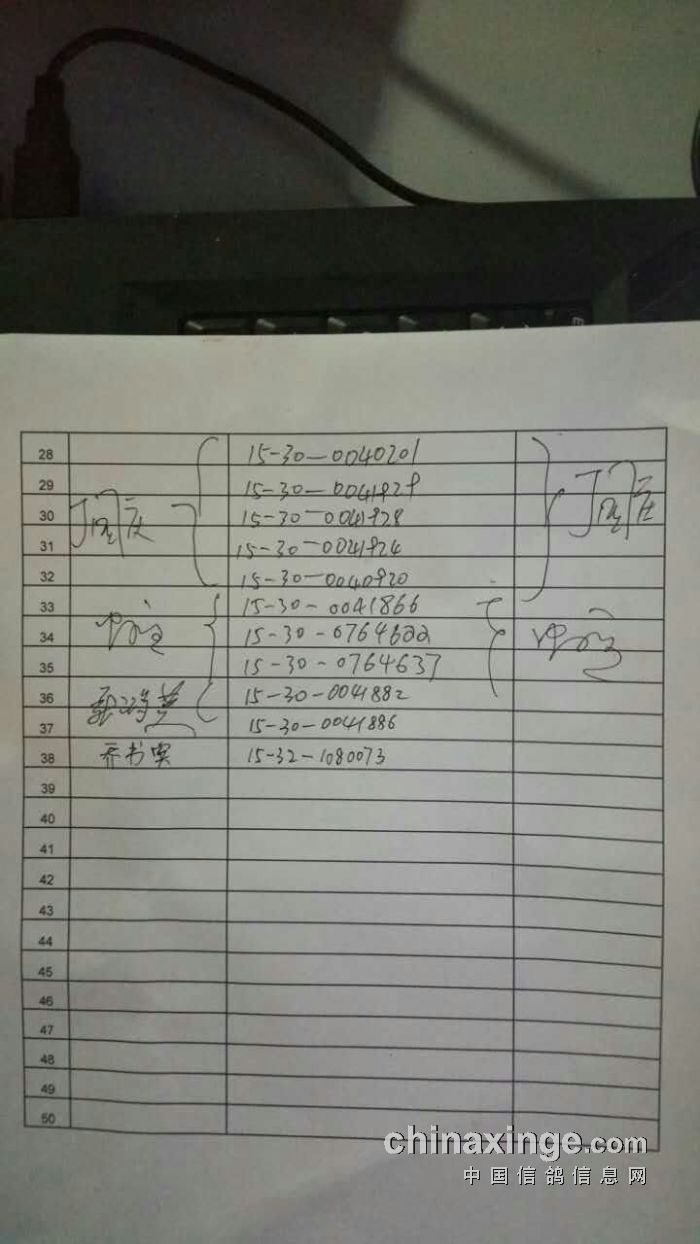 28 15-30-0040201
29 15-30-0041929
30 15-30-0041928
31 15-30-0041924
32 15-30-0040920
33 15-30-0041866
34 15-30-0764622
35 15-30-0764637
36 15-30-0041882
37 15-30-0041886
38 乔书军 15-32-1080073
39
40
41
42
43
44
45
46
47
48
49
50
chinaxinge.com
中国信鸽信息网